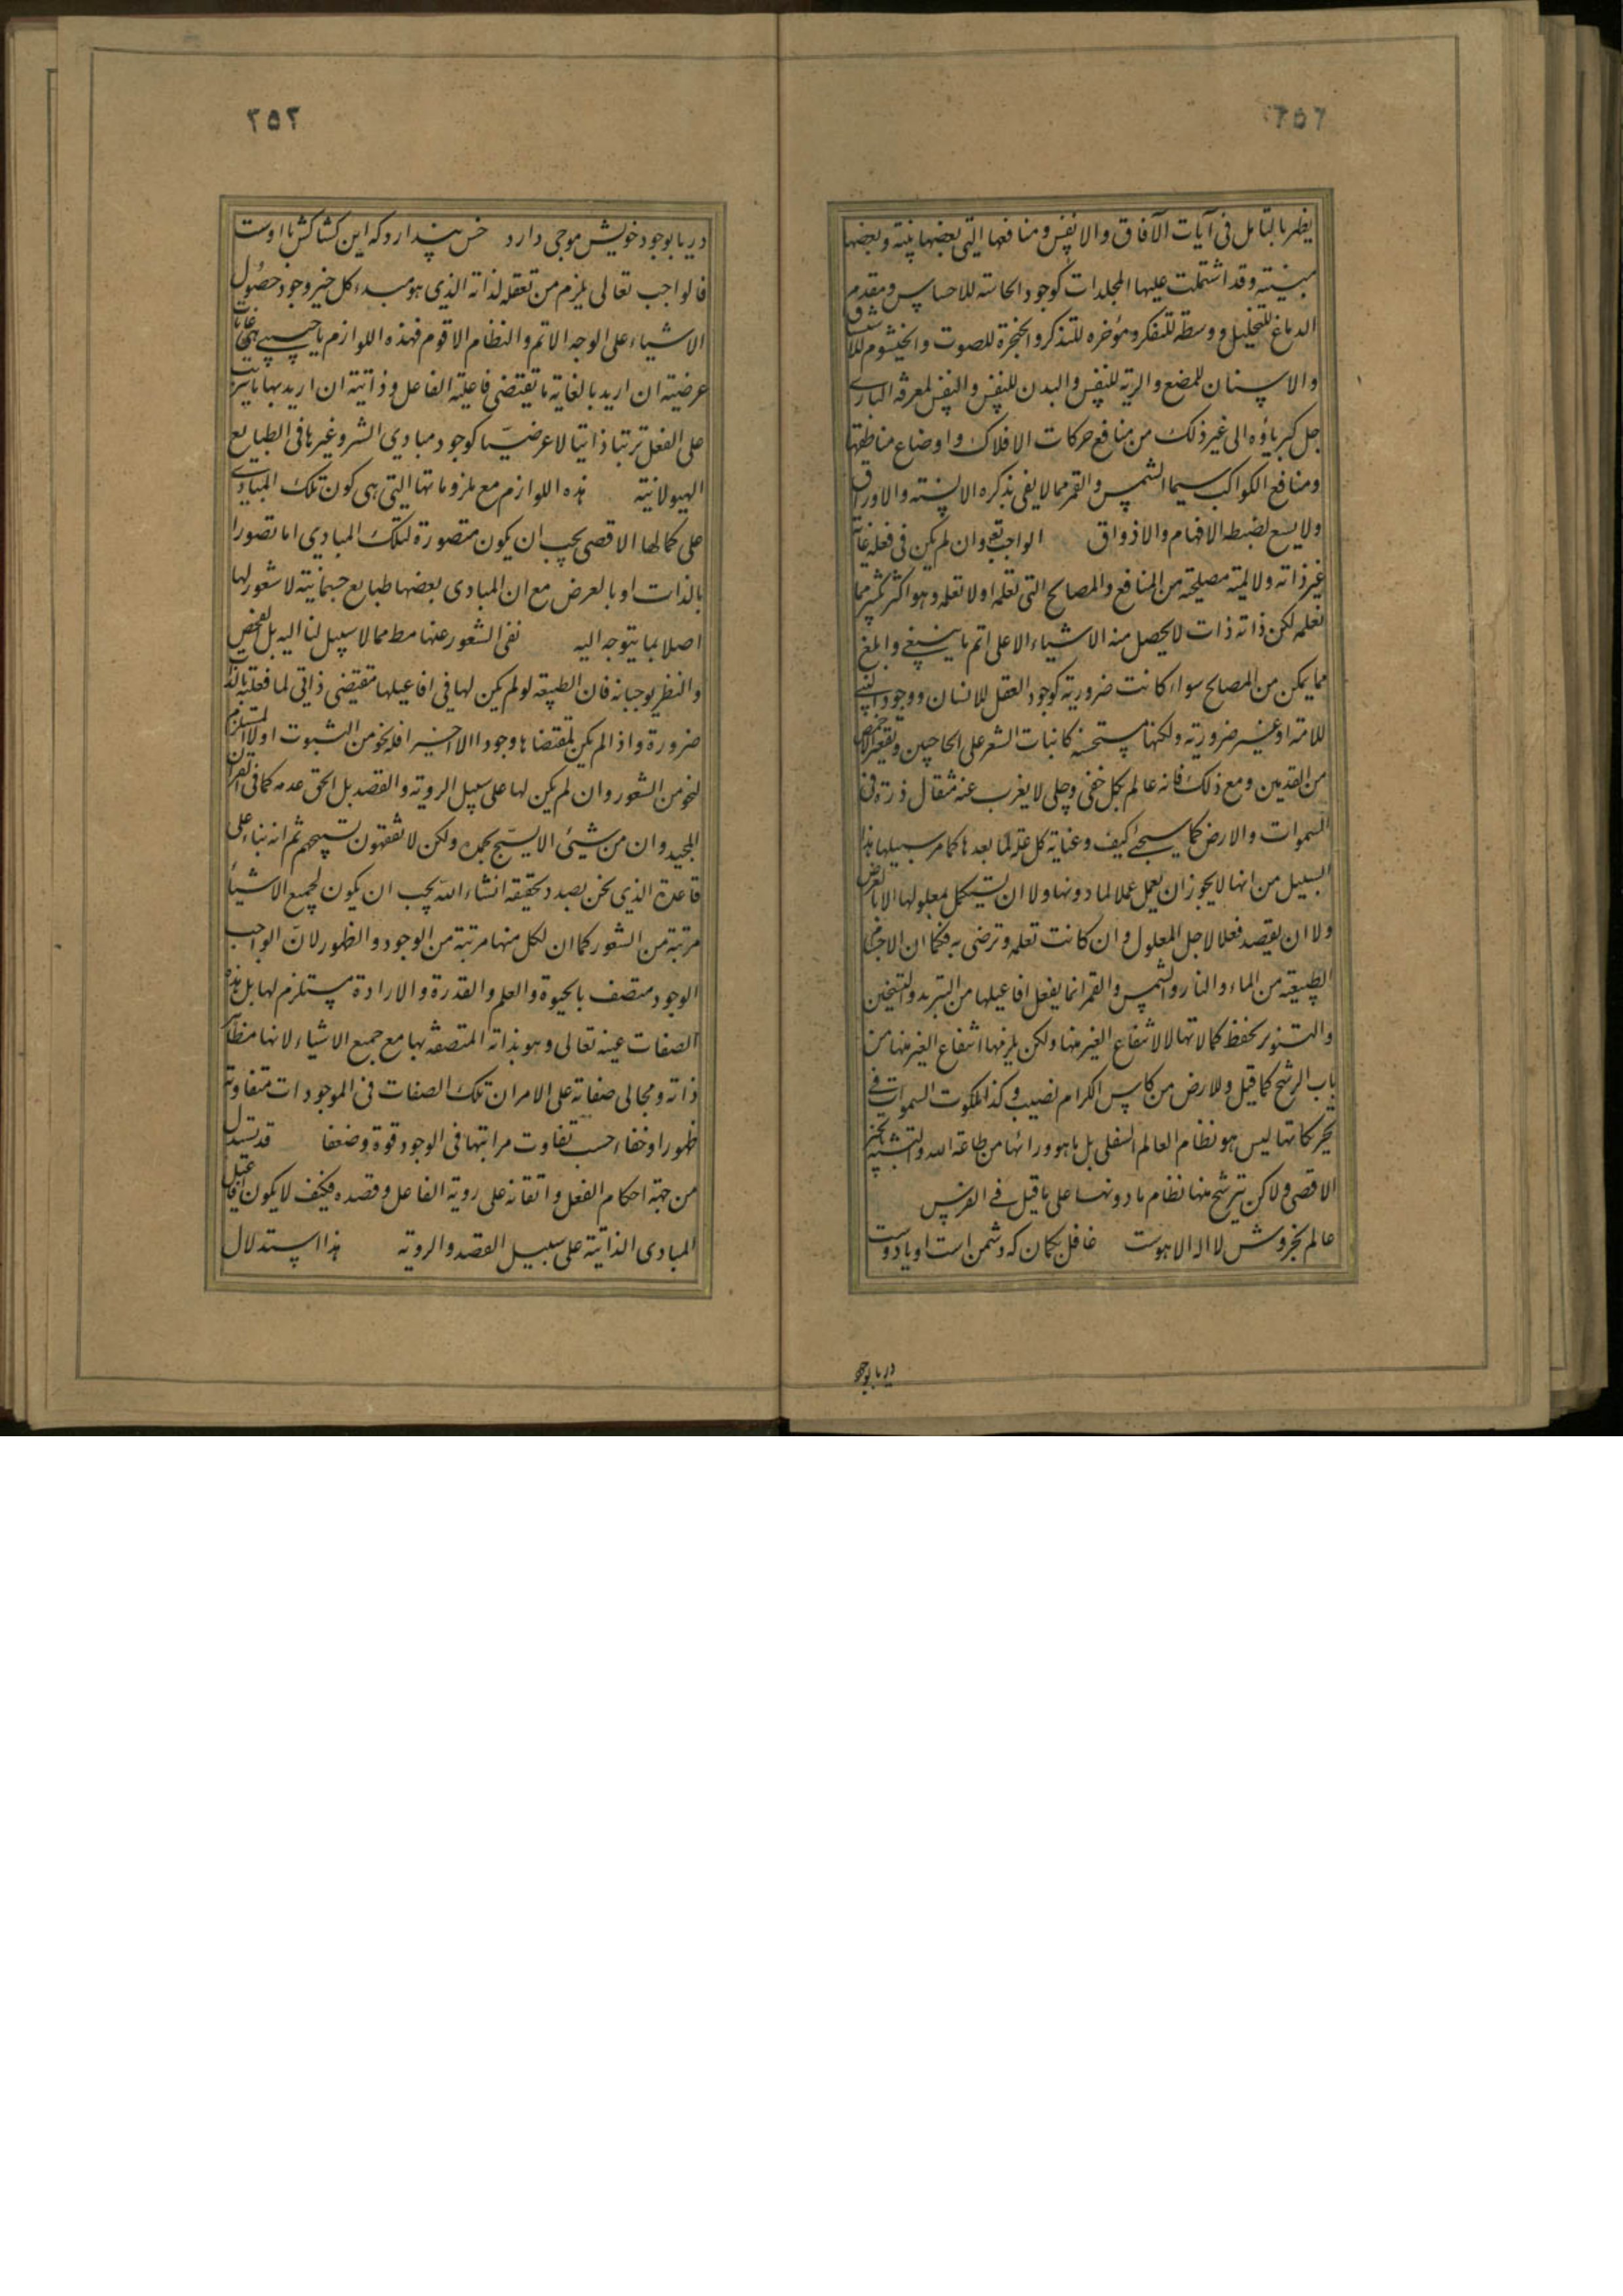 ٢٥٢
يظهر بالتامل فى آيات الآفاق والانفس ومنافعها التى بعضها بينة وبعضها
مبينة وقد اشتملت عليها المجلدات كوجود الحاسة للاحساس ومقدم
الدماغ للتخيل ووسطه للتفكر ومؤخره للتذكر والحنجرة للصوت والخيشوم للاستنشاق
والاسنان للمضغ والرية للنفس والبدن للنفس والنفس لمعرفة البارى
جل كبرياؤه الى غير ذلك من منافع حركات الافلاك واوضاع مناطقها
ومنافع الكواكب سيما الشمس والقمر مما لا يفى بذكره الالسنة والاوراق
ولا يسع لضبطه الافهام والاذواق الواجب تع وان لم يكن فى فعله غاية
غير ذاته ولا لمية مصلحة من المنافع والمصالح التى تعلمه او لا تعلمه وهو اكثر بكثير مما
نعلمه لكن ذاته ذات لا يحصل منه الاشياء الا على اتم ما ينبغى وابلغ
مما يمكن من المصالح سواء كانت ضرورية كوجود العقل للانسان ووجود النبى
للامة او غير ضرورية ولكنها مستحسنة كانبات الشعر على الحاجبين وتقعير الاخمص
من القدمين ومع ذلك فانه عالم بكل خفى وجلى لا يغرب عنه مثقال ذرة فى
السموات والارض كما سيجئ كيف وعناية كل علة لما بعدها كما مر سبيلها هذا
السبيل من انها لا يجوز ان يعمل عملا لما دونها ولا ان تستكمل بمعلولها الا بالعرض
ولا ان يقصد فعلا لاجل المعلول وان كانت تعلمه وترضى به فكما ان الاجسام
الطبيعية من الماء والنار والشمس والقمر انما يفعل افاعيلها من التبريد والتسخين
والتنوير بحفظ كمالاتها لا لانتفاع الغير منها ولكن يلزمها انتفاع الغير منها من
باب الرشح كما قيل وللارض من كاس الكرام نصيب وكذا ملكوت السموات فى
تحريكاتها ليس هو نظام العالم السفلى بل ما هو ورائها من طاعة الله والتشبه بالخير
الاقصى ولاكن يترشح منها نظام ما دونها على ما قيل فى الفرس
عالم بخروش لا اله الا هوست غافل بگمان كه دشمن است او يا دوست
دريا بوجو
٢٥٣
دريا بوجود خويش موجى دارد خس پندارد كه اين كشاكش با اوست
فالواجب تعالى يلزم من تعقله لذاته الذى هو مبدء كل خير وجود حصول
الاشياء على الوجه الاتم والنظام الاقوم فهذه اللوازم يا حبيبى هى غايات
عرضية ان اريد بالغاية ما يقتضى فاعلية الفاعل وذاتية ان اريد بها ما يترتب
على الفعل ترتبا ذاتيا لا عرضيّا كوجود مبادى الشر وغيرها فى الطبايع
الهيولانية هذه اللوازم مع ملزوماتها التى هى كون تلك المبادى
على كمالها الاقصى يجب ان يكون متصورة لتلك المبادى اما تصورا
بالذات او بالعرض مع ان المبادى بعضها طبايع جسمانية لا شعور لها
اصلا بما يتوجه اليه نفى الشعور عنها مط مما لا سبيل لنا اليه بل الفحص
والنظر يوجبانه فان الطبيعة لو لم يكن لها فى افاعيلها مقتضى ذاتى لما فعلته بالذات
ضرورة واذا لم يكن لمقتضاها وجود الا اخيرا فله نحو من الثبوت اولا المستلزم
لنحو من الشعور وان لم يكن لها على سبيل الروية والقصد بل الحق عدمه كما فى القرآن
المجيد وان من شيئ الا يسبّح بحمده ولكن لا تفقهون تسبيحهم ثم انه بناء على
قاعدة الذى نحن بصدد تحقيقه انشاء الله يجب ان يكون لجميع الاشياء
مرتبة من الشعور كما ان لكل منها مرتبة من الوجود والظهور لان الواجب
الوجود متصف بالحيوة والعلم والقدرة والارادة مستلزم لها بل هذه
الصفات عينه تعالى وهو بذاته المتصفة بها مع جميع الاشياء لانها مظاهر
ذاته ومجالى صفاته على الامر ان تلك الصفات فى الموجودات متفاوتة
ظهورا وخفاء حسب تفاوت مراتبها فى الوجود قوة وضعفا قد تستدل
من جهة احكام الفعل واتقانه على روية الفاعل وقصده فكيف لا يكون افاعيل
المبادى الذاتية على سبيل القصد والروية هذا استدلال